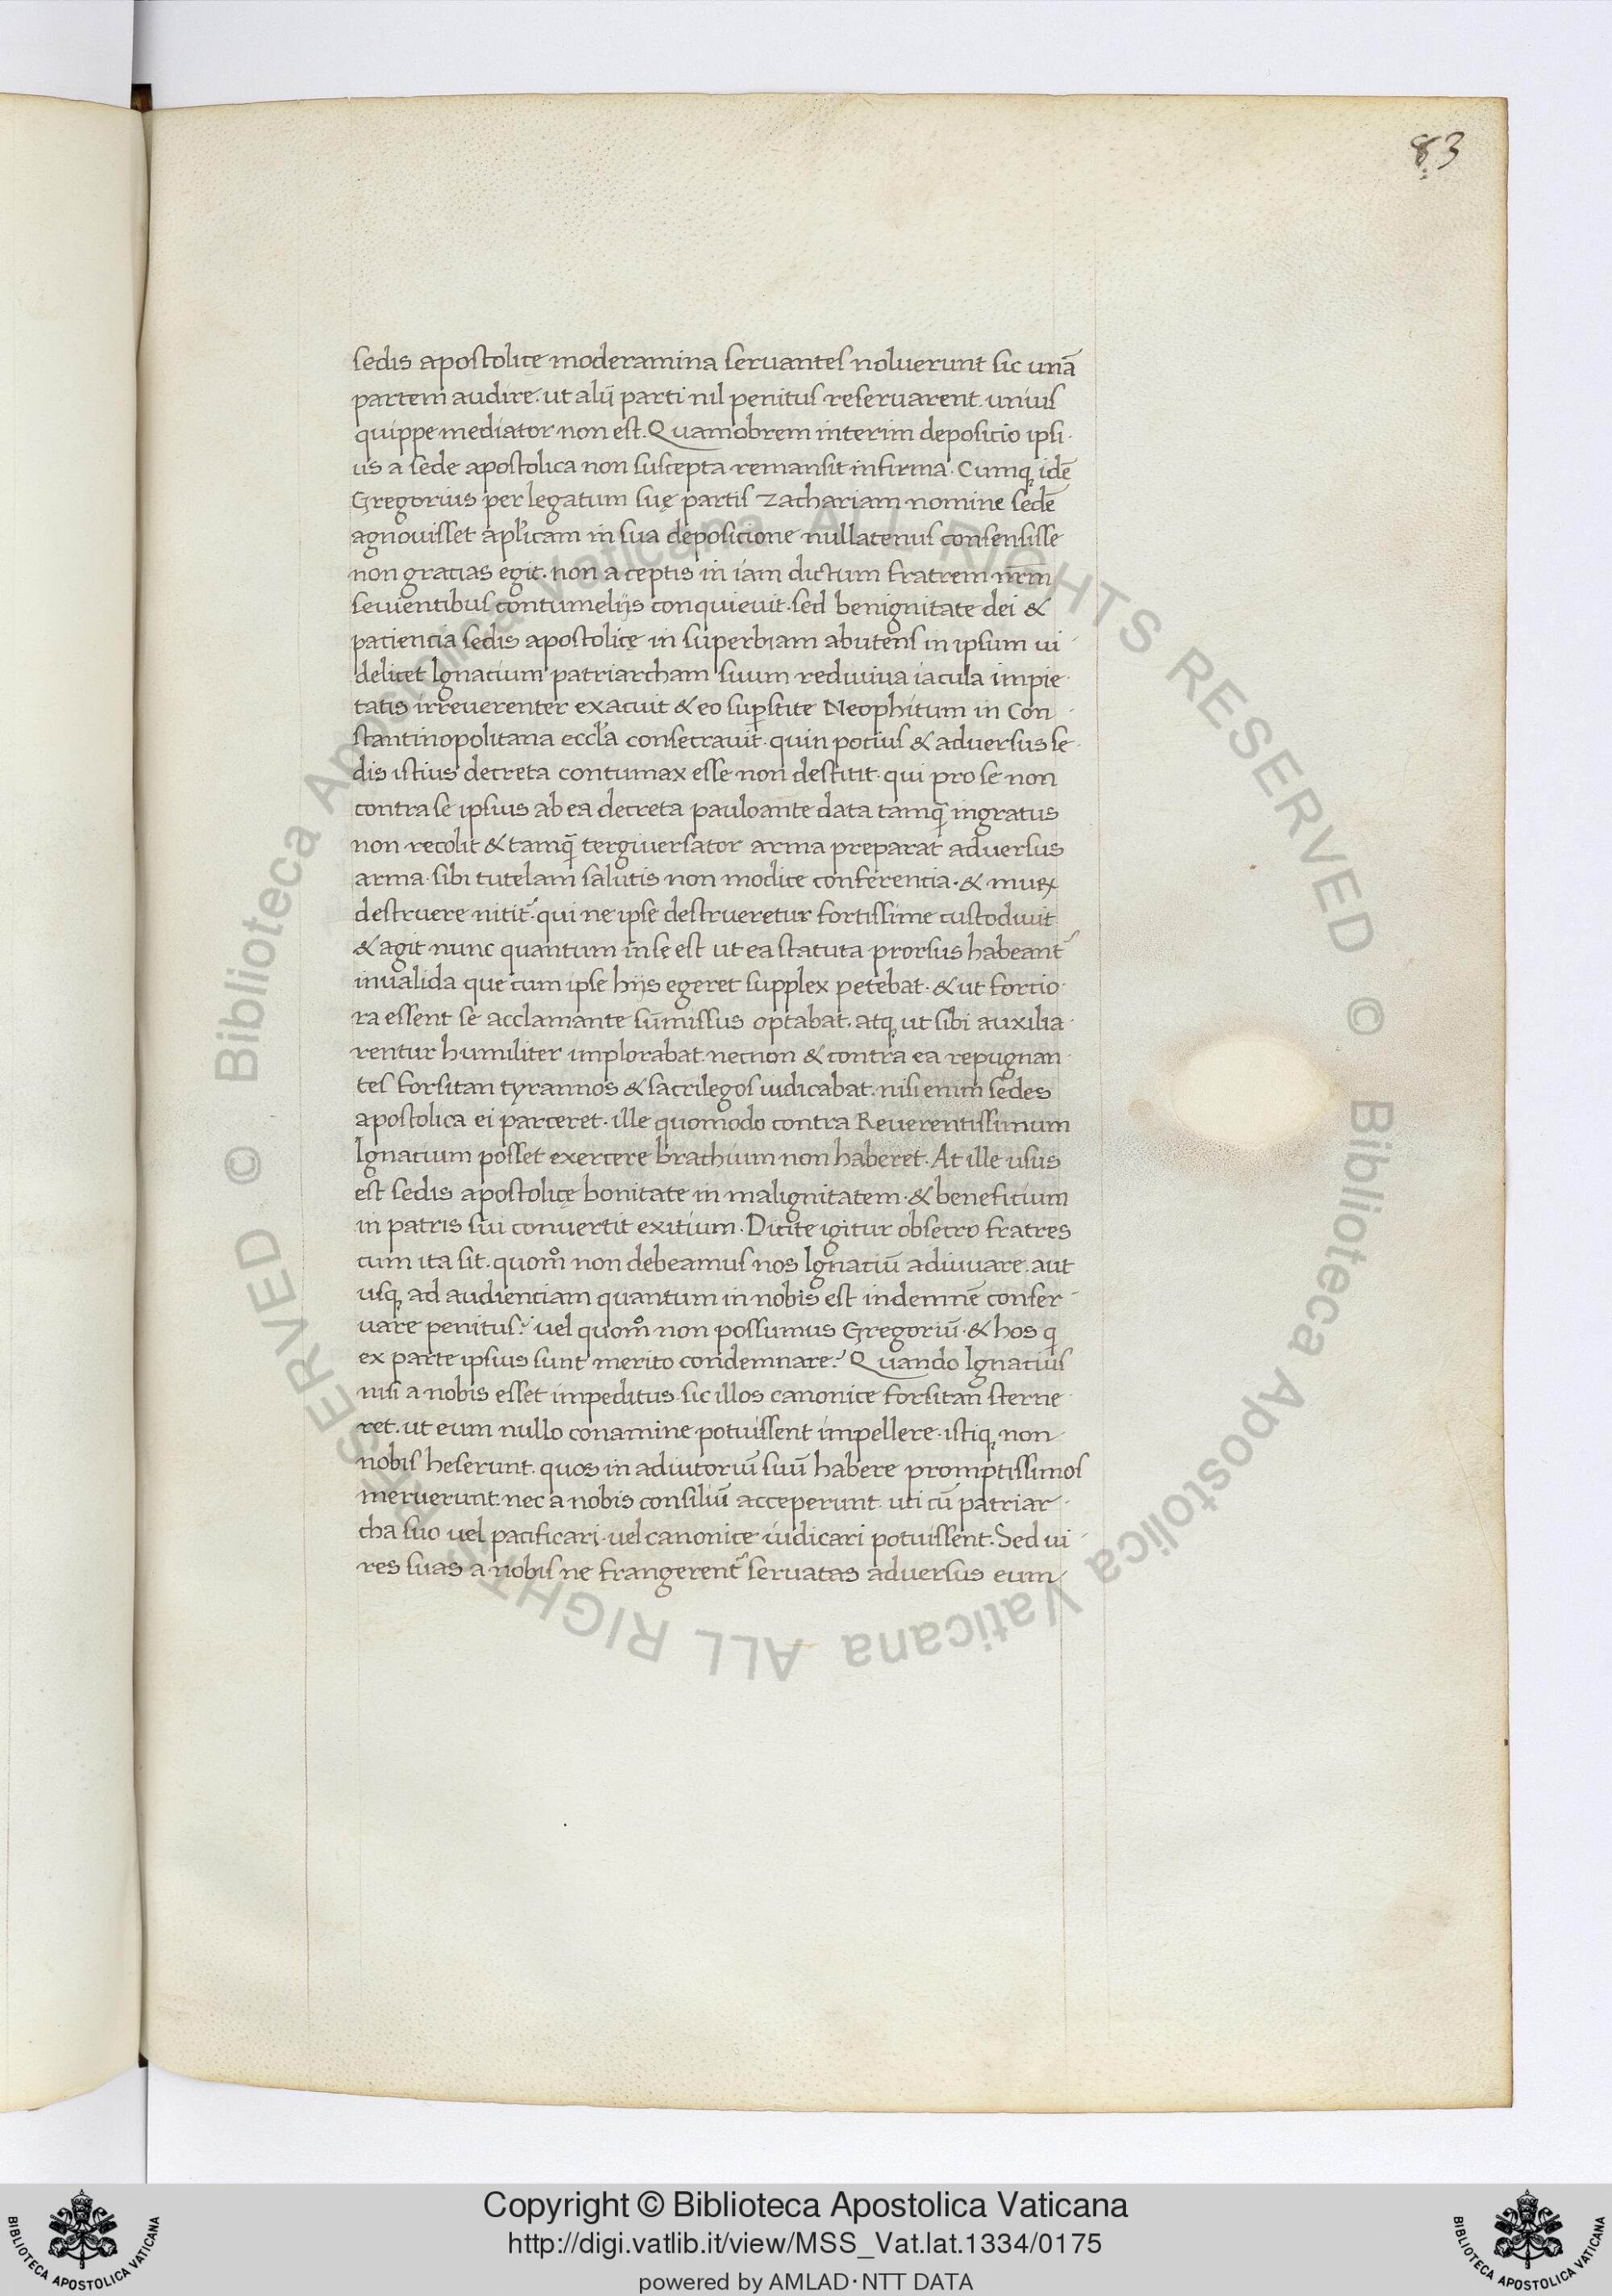 83
sedis apostolice moderamina servantes noluerunt sic unā
partem audire. ut alii parti nil penitus reservarent. unius
quippe mediator non est. Quamobrem interim deposicio ipsi-
us a sede apostolica non suscepta remansit infirma. Cumq; idē
Gregorius per legatum suę partis Zachariam nomine sedē
agnovisset apl'icam in sua deposicione nullatenus consensisse
non gratias egit. non a ceptis in iam dictum fratrem nr̄m
sevientibus contumelijs conquievit. sed benignitate dei &
paciencia sedis apostolicę in superbiam abutens in ipsum vi-
delicet Ignacium patriarcham suum rediviva iacula impie-
tatis irreverenter exacuit & eo sup̄stite Neophitum in Con-
stantinopolitana eccl'a consecravit. quin pocius & adversus se-
dis istius decreta contumax esse non destitit. qui pro se non
contra se ipsius ab ea decreta pauloante data tamq̄ ingratus
non recolit & tamq̄ tergiversator arma preparat adversus
arma. sibi tutelam salutis non modice conferencia. & muꝝ
destruere nitit᷑. qui ne ipse destrueretur fortissime custodivit
& agit nunc quantum in se est ut ea statuta prorsus habeant᷑
invalida que cum ipse hijs egeret supplex petebat. & ut forcio-
ra essent se acclamante sūmissus optabat. atq; ut sibi auxilia-
rentur humiliter implorabat. necnon & contra ea repugnan-
tes forsitan tyrannos & sacrilegos iudicabat. nisi enim sedes
apostolica ei parceret. ille quomodo contra Reverentissimum
Ignacium posset exercere brachium non haberet. At ille usus
est sedis apostolicę bonitate in malignitatem. & beneficium
in patris sui convertit exitium. Dicite igitur obsecro fratres
cum ita sit. quom̊ non debeamus nos Ignaciū adiuvare. aut
usq; ad audienciam quantum in nobis est indemnē conser-
vare penitus? vel quom̊ non possumus Gregoriū. & hos q̄
ex parte ipsius sunt merito condemnare? Quando Ignacius
nisi a nobis esset impeditus. sic illos canonice forsitan sterne-
ret. ut eum nullo conamine potuissent impellere. istiq; non
nobis heserunt. quos in adiutoriū suū habere promptissimos
meruerunt. nec a nobis consiliū acceperunt. uti cū patriar-
cha suo vel pacificari. vel canonice iudicari potuissent. Sed vi-
res suas a nobis ne frangerent᷑ servatas adversus eum
© Biblioteca Apostolica Vaticana ALL RIGHTS RESERVED
© Biblioteca Apostolica Vaticana ALL RIGHTS RESERVED
Copyright © Biblioteca Apostolica Vaticana
http://digi.vatlib.it/view/MSS_Vat.lat.1334/0175
powered by AMLAD·NTT DATA
BIBLIOTECA APOSTOLICA VATICANA
BIBLIOTECA APOSTOLICA VATICANA